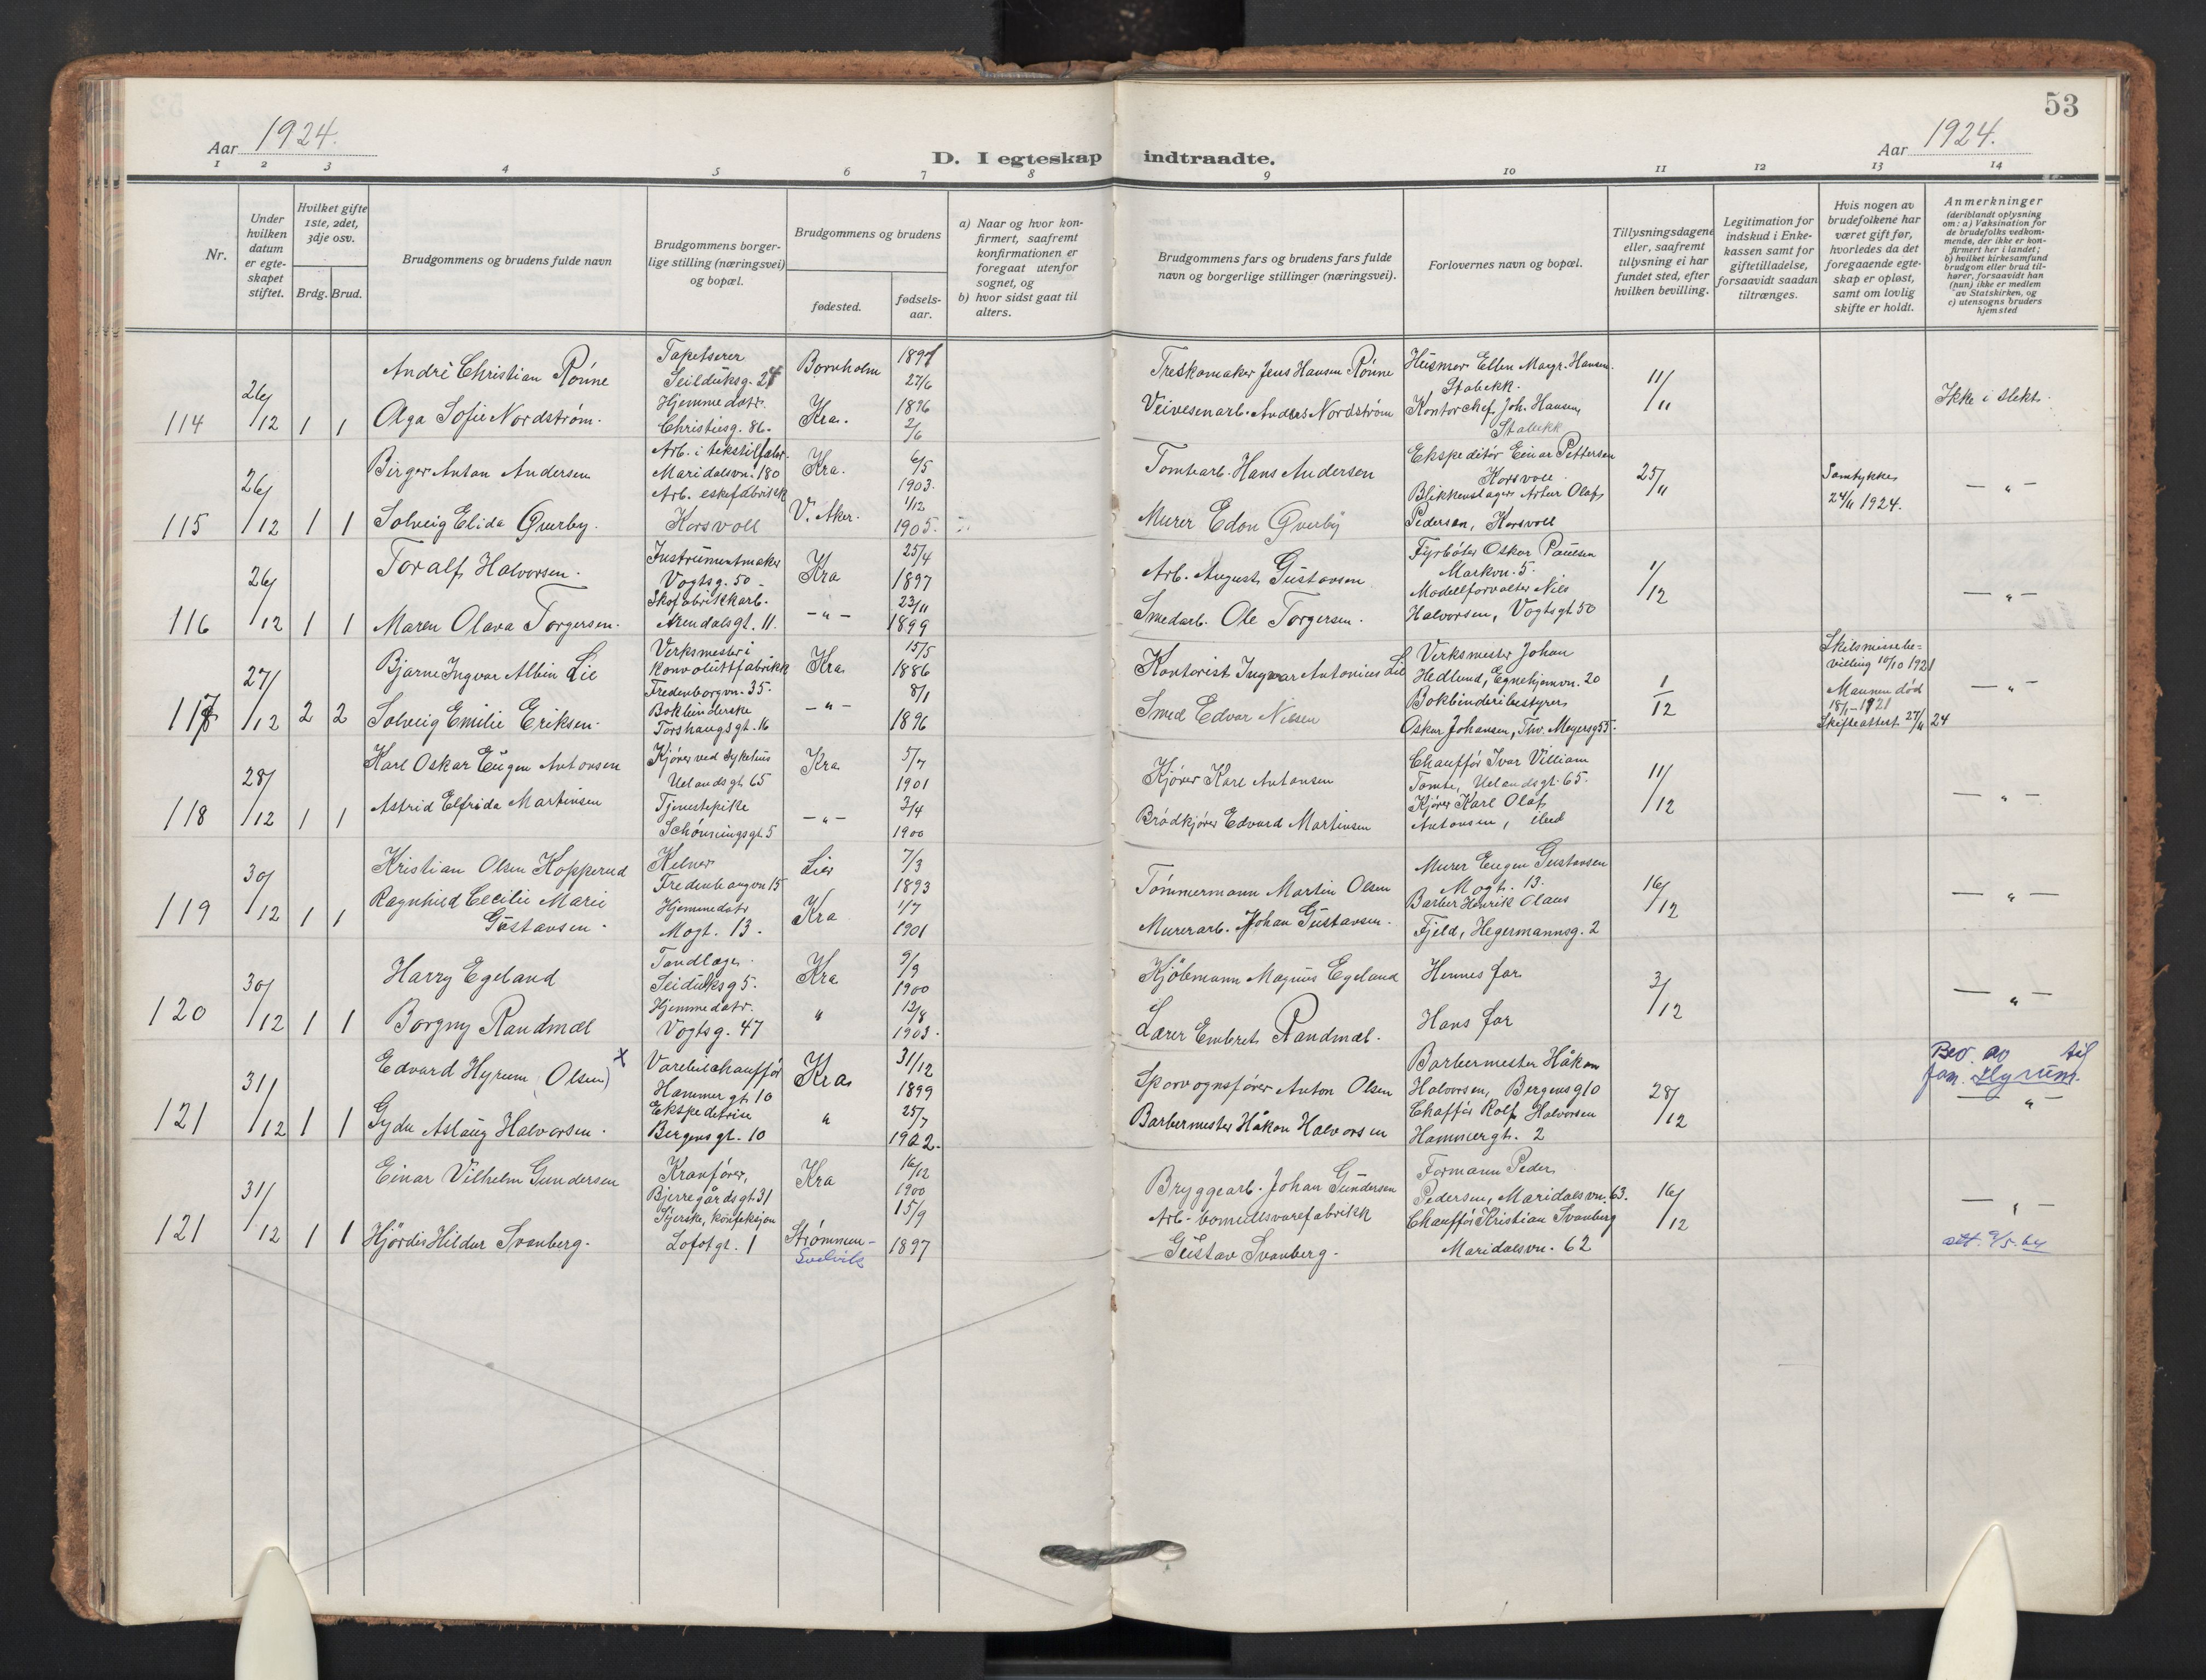 53
Aar 1924.
D. I egteskap indtraadte.
Aar 1924.
1 2 3 4 5 6 7 8 9 10 11 12 13 14
Nr.
Under hvilken datum er egteskapet stiftet.
Hvilket gifte 1ste, 2det, 3dje osv.
Brdg. Brud.
Brudgommens og brudens fulde navn
Brudgommens borgerlige stilling (næringsvei) og bopæl.
Brudgommens og brudens
fødested.
fødselsaar.
a) Naar og hvor konfirmert, saafremt konfirmationen er foregaat utenfor sognet, og
b) hvor sidst gaat til alters.
Brudgommens fars og brudens fars fulde navn og borgerlige stillinger (næringsvei).
Forlovernes navn og bopæl.
Tillysningsdagene eller, saafremt tillysning ei har fundet sted, efter hvilken bevilling.
Legitimation for indskud i Enkekassen samt for giftetilladelse, forsaavidt saadan tiltrænges.
Hvis nogen av brudefolkene har været gift før, hvorledes da det foregaaende egteskap er opløst, samt om lovlig skifte er holdt.
Anmerkninger
(deriblandt oplysning om: a) Vaksination for de brudefolks vedkommende, der ikke er konfirmert her i landet; b) hvilket kirkesamfund brudgom eller brud tilhører, forsaavidt han (hun) ikke er medlem av Statskirken, og c) utensogns bruders hjemsted
114 26/12 1 1
André Christian Rönne
Tapetserer
Seilduksg. 24
Bornholm
27/6
Treskomaker Jens Hansen Rönne
Husmor Ellen Margr. Hansen
Stabekk.
11/11
Ikke i slekt.
Olga Sofie Nordstrøm.
Hjemmedatr.
Christiesg. 86.
Kra.
1896
2/6
Veivesenarb. Anders Nordstrøm
Kontorchef Joh. Hansen,
Stabekk
115 26/12 1 1
Birger Anton Andersen
Arb. i tekstilfabr.
Maridalsvn. 180
Kra.
6/5
1903.
Tomtearb. Hans Andersen
Ekspeditør Einar Pettersen
Korsvoll
25/11
Samtykke
24/11 1924.
— „ —
Solveig Elida Øverby.
Arb. eskefabrikk
Korsvoll
V. Aker.
1/12
1905.
Murer Edon Øverby
Blikkenslager Artur Olaf
Pedersen, Korsvoll
116 26/12 1 1
Toralf Halvorsen.
Instrumentmaker
Vogtsg. 50
Kra
25/4
1897
Arb. August Gustavsen
Fyrbøter Oskar Paulsen
Markvn. 5.
1/12
— „ —
Maren Olava Torgersen.
Skofabrikkarb.
Arendalsgt. 11.
— „ —
23/11
1899
Smedarb. Ole Torgersen.
Modellforvalter Nils
Halvorsen, Vogtsgt 50
117 27/12 2 2
Bjarne Ingvar Albin Lie
Verksmester i
konvoluttfabrikk
Fredenborgvn. 35.
Kra
15/5
1886
Kontorist Ingvar Antonius Lie
Verksmester Johan
Hedlund, Egnehjemvn. 20
1/12
Skilsmissebe-
villing 10/10 1921
— „ —
Solveig Emilie Eriksen.
Bokbinderske
Torshaugsgt. 16
— „ —
8/1
1896
Smed Edvar Nilsen
Bokbinderibestyrer
Oskar Johansen, Thv. Meyersg 55.
Mannen död
18/1 - 1921
Skifteattest. 27/11 24
118 28/12 1 1
Karl Oskar Eugen Antonsen
Kjører ved sykehus
Uelandsgt 65
Kra
5/7
1901
Kjører Karl Antonsen
Chauffør Ivar Villiam
Tomte, Uelandsgt. 65.
11/12
— „ —
Astrid Elfrida Martinsen
Tjenestepike
Schönningsgt. 5
— „ —
3/4
1900
Brødkjører Edvard Martinsen
Kjører Karl Olaf
Antonsen, ibid
119 30/12 1 1
Kristian Olsen Kopperud
Kelner
Fredenborgvn 15
Lier
7/3
1893
Tömmermann Martin Olsen
Murer Eugen Gustavsen
Mogt. 13.
16/12
— „ —
Ragnhild Cecilie Marie
Gustavsen.
Hjemmedatr
Mogt. 13.
Kra
1/7
1901
Murerarb. Johan Gustavsen.
Barber Henrik Olaus
Fjeld, Hegermannsg. 2
120 30/12 1 1
Harry Egeland
Tandlæge.
Seilduksg 5.
Kra
9/9
1900
Kjøbmann Magnus Egeland
Hennes far
3/12
— „ —
Borgny Randmæl
Hjemmedatr.
Vogtsg. 47
„
12/8
1903.
Lærer Embret Randmæl.
Hans far
121 31/12 1 1
Edvard Hyrum (Olsen) x
Varebilchauffør
Hammergt. 10
Kra
31/12
1899
Sporvognsfører Anton Olsen
Barbermester Håkon
Halvorsen, Bergensg 10
28/12
Bev. av til
fam. Hyrum.
— „ —
Gyda Aslaug Halvorsen.
Ekspeditrise
Bergensgt. 10
„
25/7
Barbermester Håkon Halvorsen
Chaffør Rolf Halvorsen
Hammergt. 2
121 31/12 1 1
Einar Vilhelm Gundersen
Kranfører,
Bjerregårdsgt 31
Kra
16/12
1900
Bryggearb. Johan Gundersen
Formann Peder
Pedersen, Maridalsvn. 63.
16/12
— „ —
Hjördis Hildur Svanberg.
Syerske, konfeksjon
Lofotgt. 1
Strømmen-
Svelvik
15/9
1897
Arb. bomullsvarefabrikk
Gustav Svanberg.
Chauffør Kristian Svanberg
Maridalsvn. 62
att. 9/5. 64